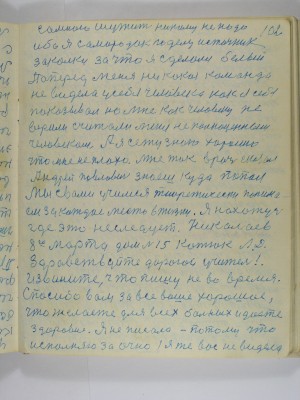 самого служит никому не надо 102
ибо я самородок поделу источник
закалку за что я сделали белым
поперед меня никакая команда
не видела у себя человека как я себя
показывал но мне как человеку не
верили считали меня не полноценным
человеком. А я стужусь хорошо
что мне плохо мне так врач сказал
Андрей Павлович знаем куда попал
Мы с вами учимся теоретически понима-
ем за каждое место в жизни. Я нахожусь
где это не следует. Николаев
8го марта дом № 15 Котюк Л.Я.
Здравствуйте дорогой учитель!
Извините, что пишу не во время.
Спасибо вам за все ваше хорошее,
что желаете для всех больных и даете
здоровье. Я не писала – потому что
исполняю заочно! Я же вас не видела